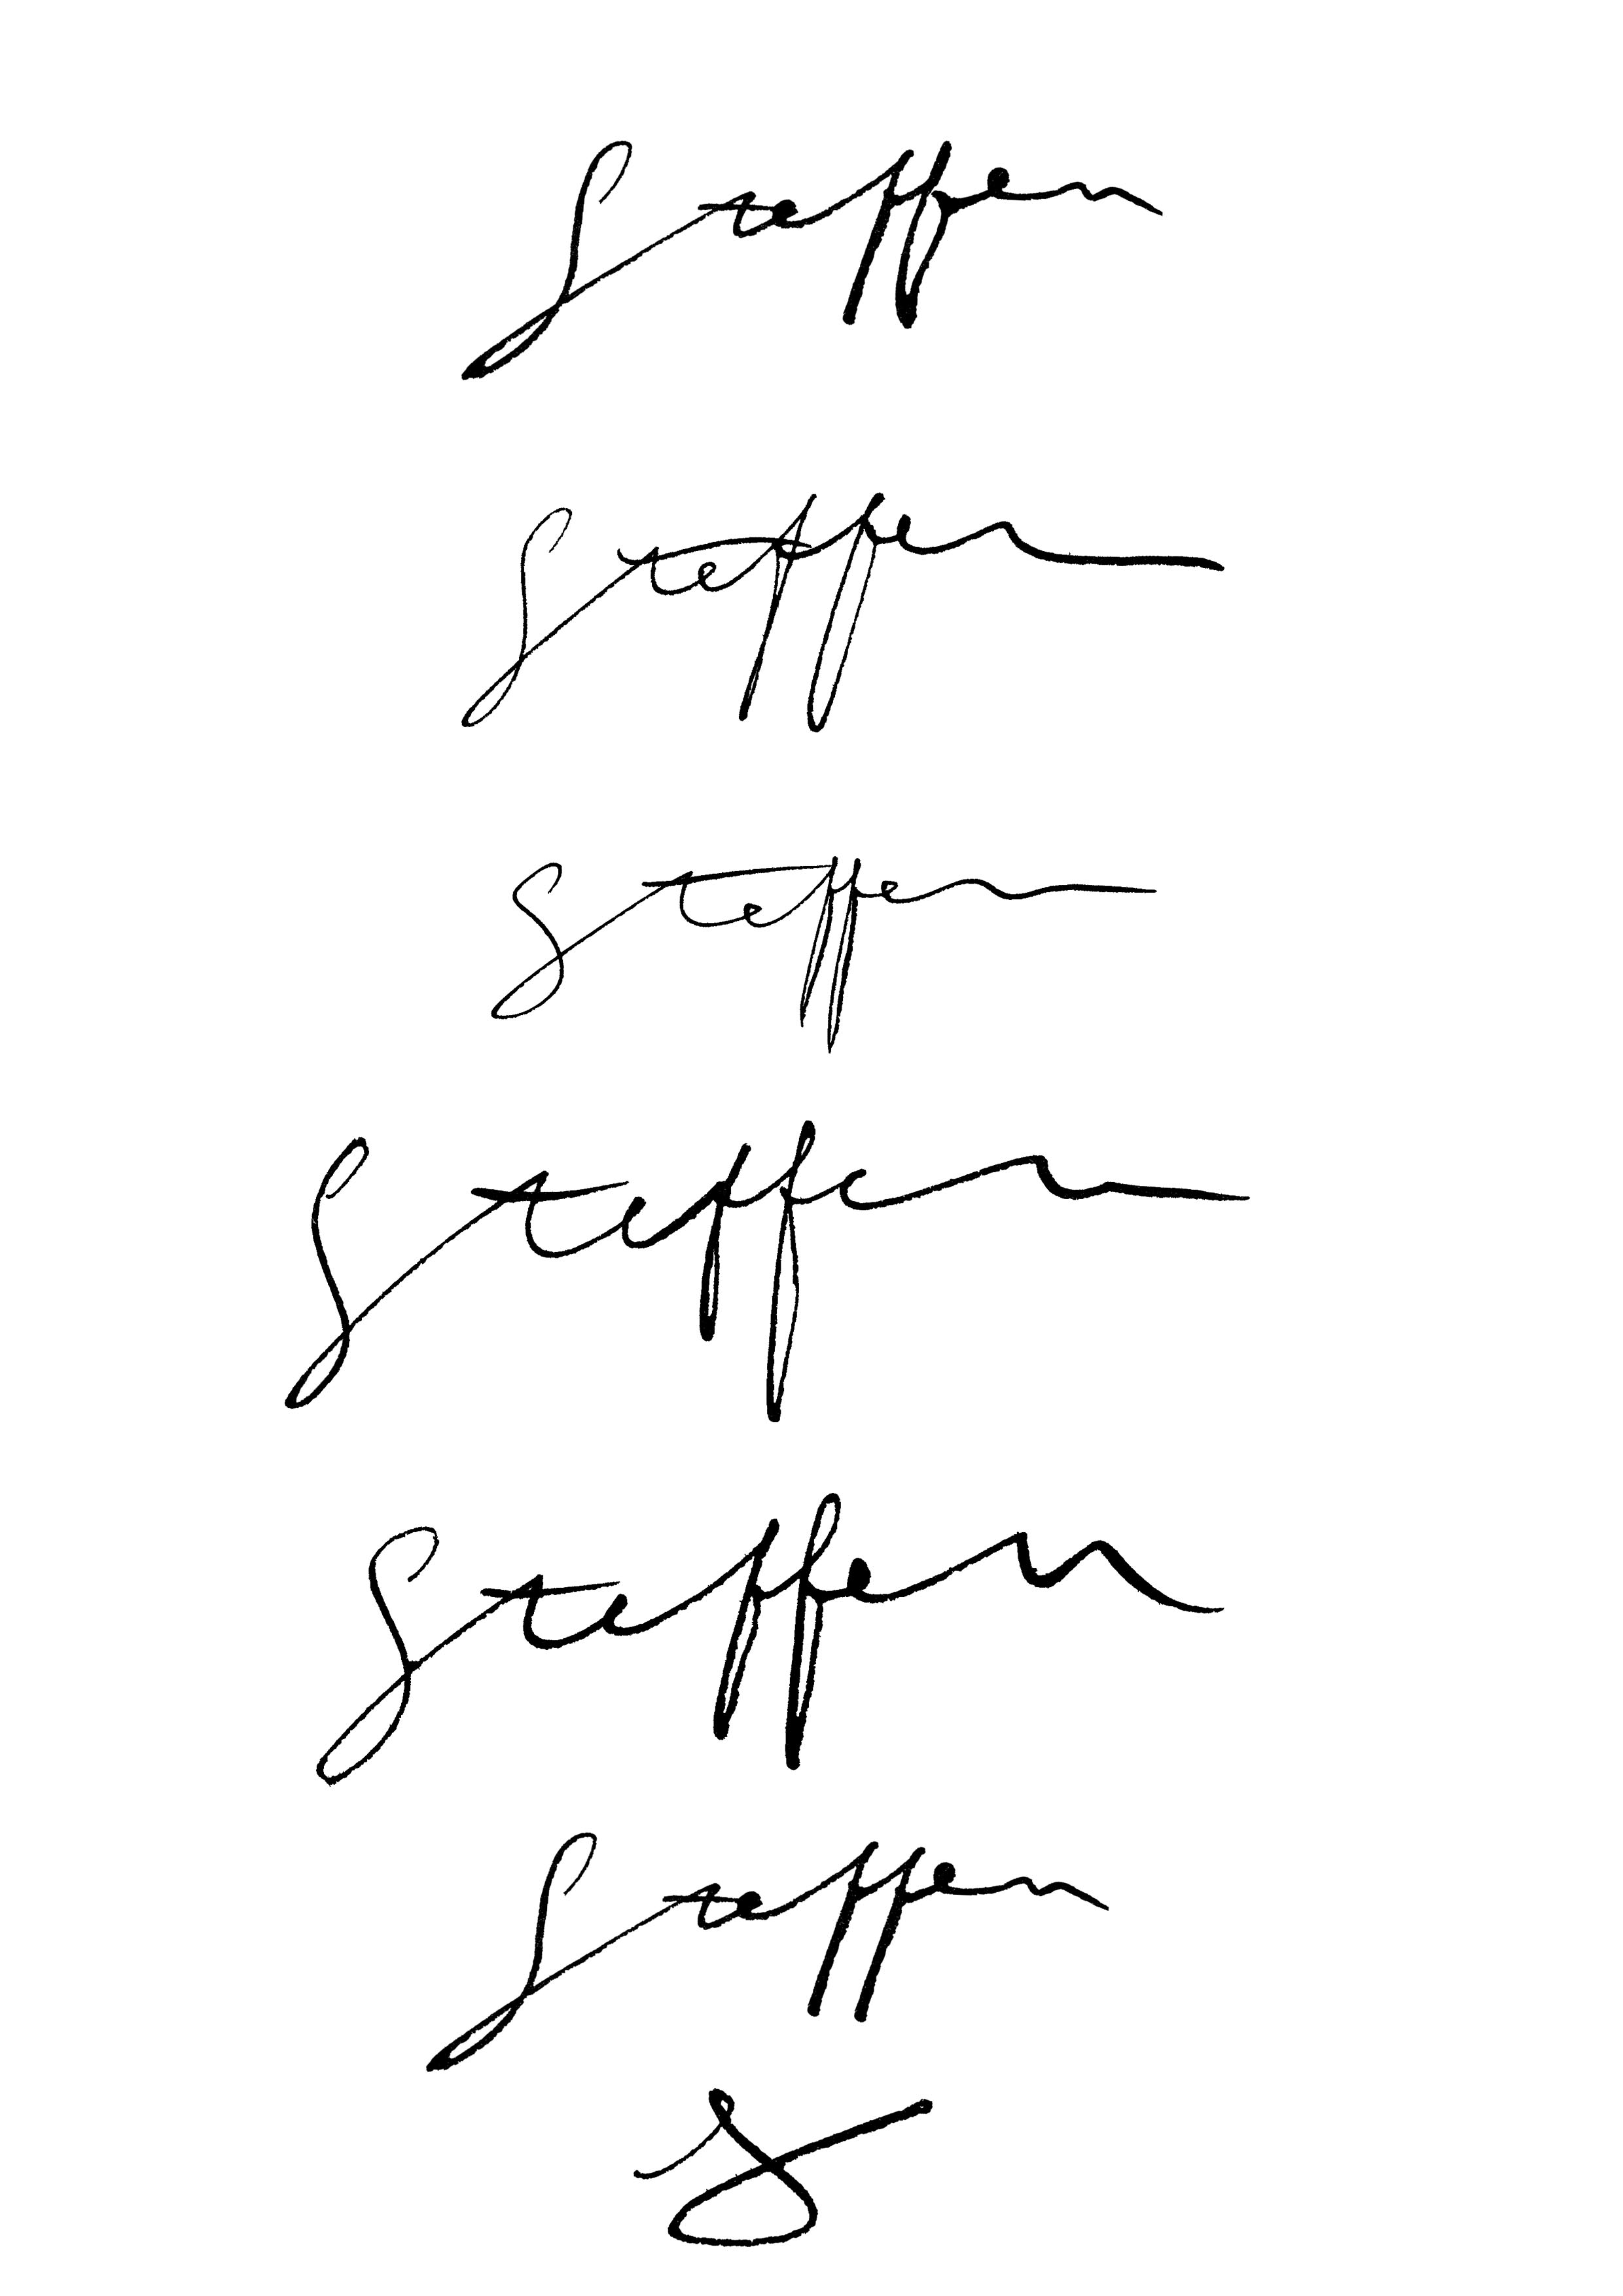 Steffen
Steffen
Steffen
Steffen
Steffen
Steffen
S